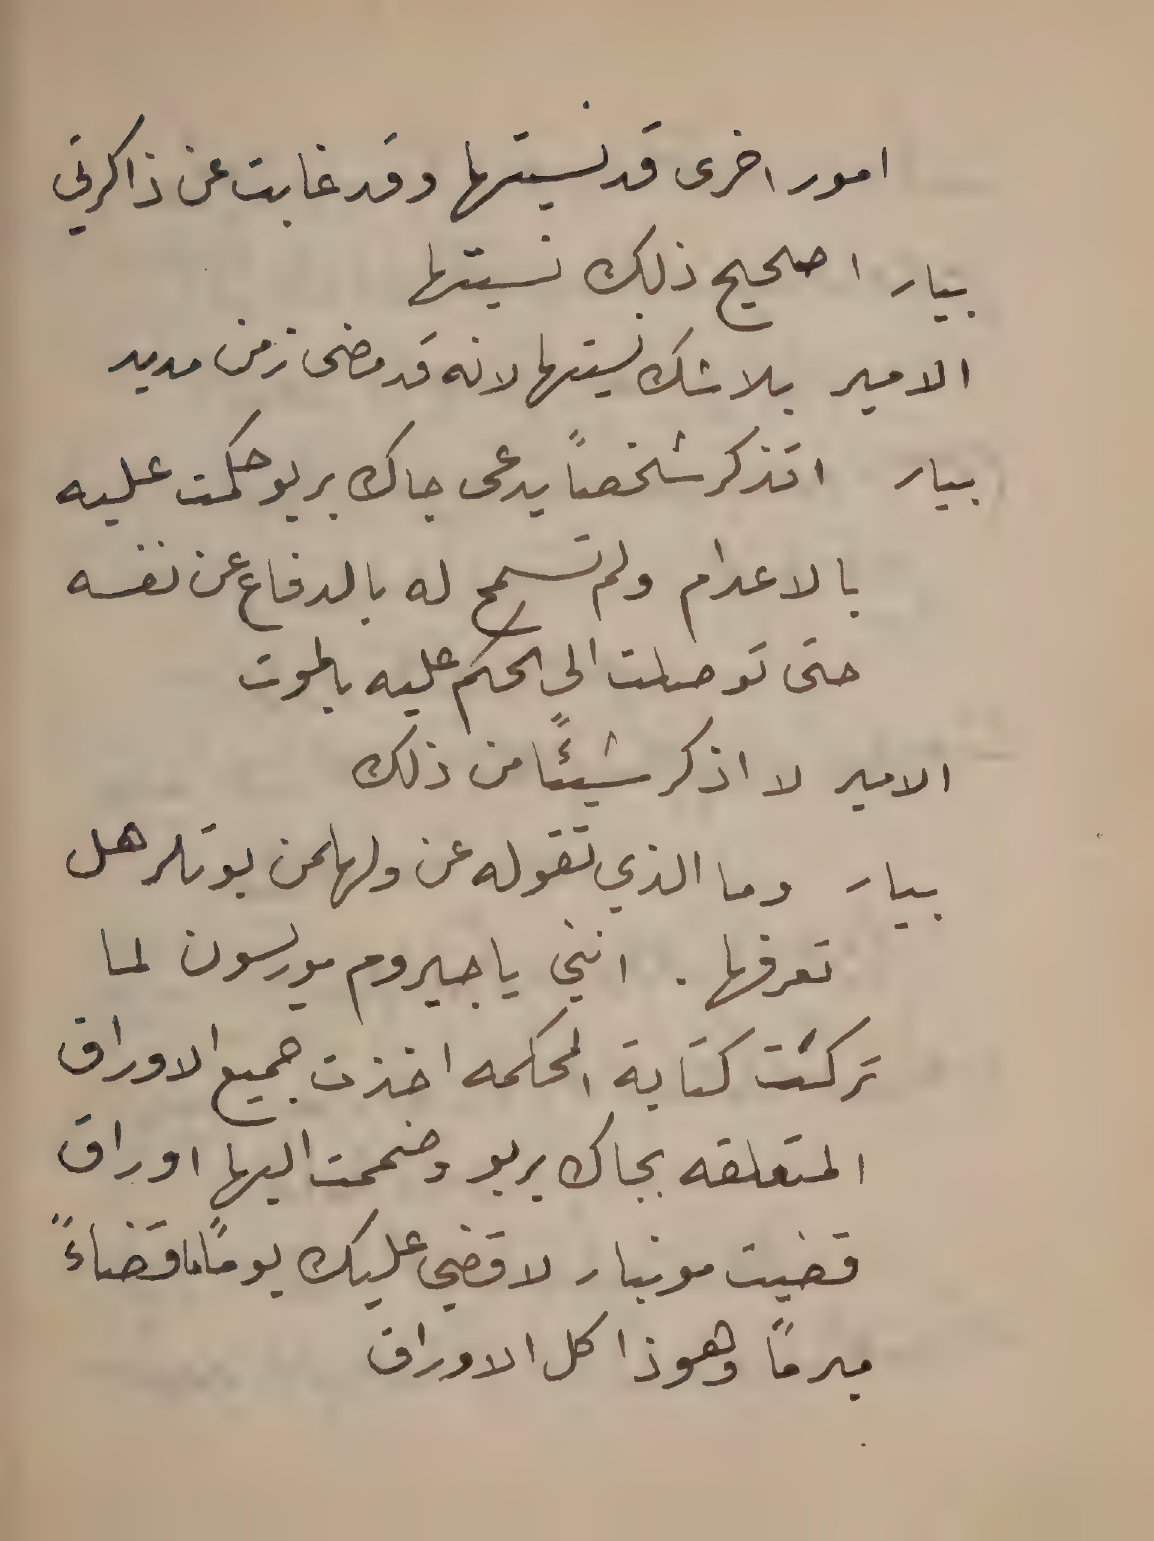 امور اخرى قد نسيتها وقد غابت عن ذاكرتي
بيار اصحيح ذلك نسيتها
الامير بلا شك نسيتها لانه قد مضى زمن مديد
بيار اتذكر شخصاً يدعى جاك بريو حكمت عليه
بالاعدام ولم تسمح له بالدفاع عن نفسه
حتى توصلت الى الحكم عليه بالموت
الامير لا اذكر شيئاً من ذلك
بيار وما الذي تقوله عن ولهلمن بوتلر هل
تعرفها . انني يا جيروم مورسون لما
تركت كتابة المحكمه اخذت جميع الاوراق
المتعلقه بجاك بريو وضممت اليها اوراق
قضيت مونبار لاقضي عليك يوماً ما قضاءً
مبرماً وهوذا كل الاوراق